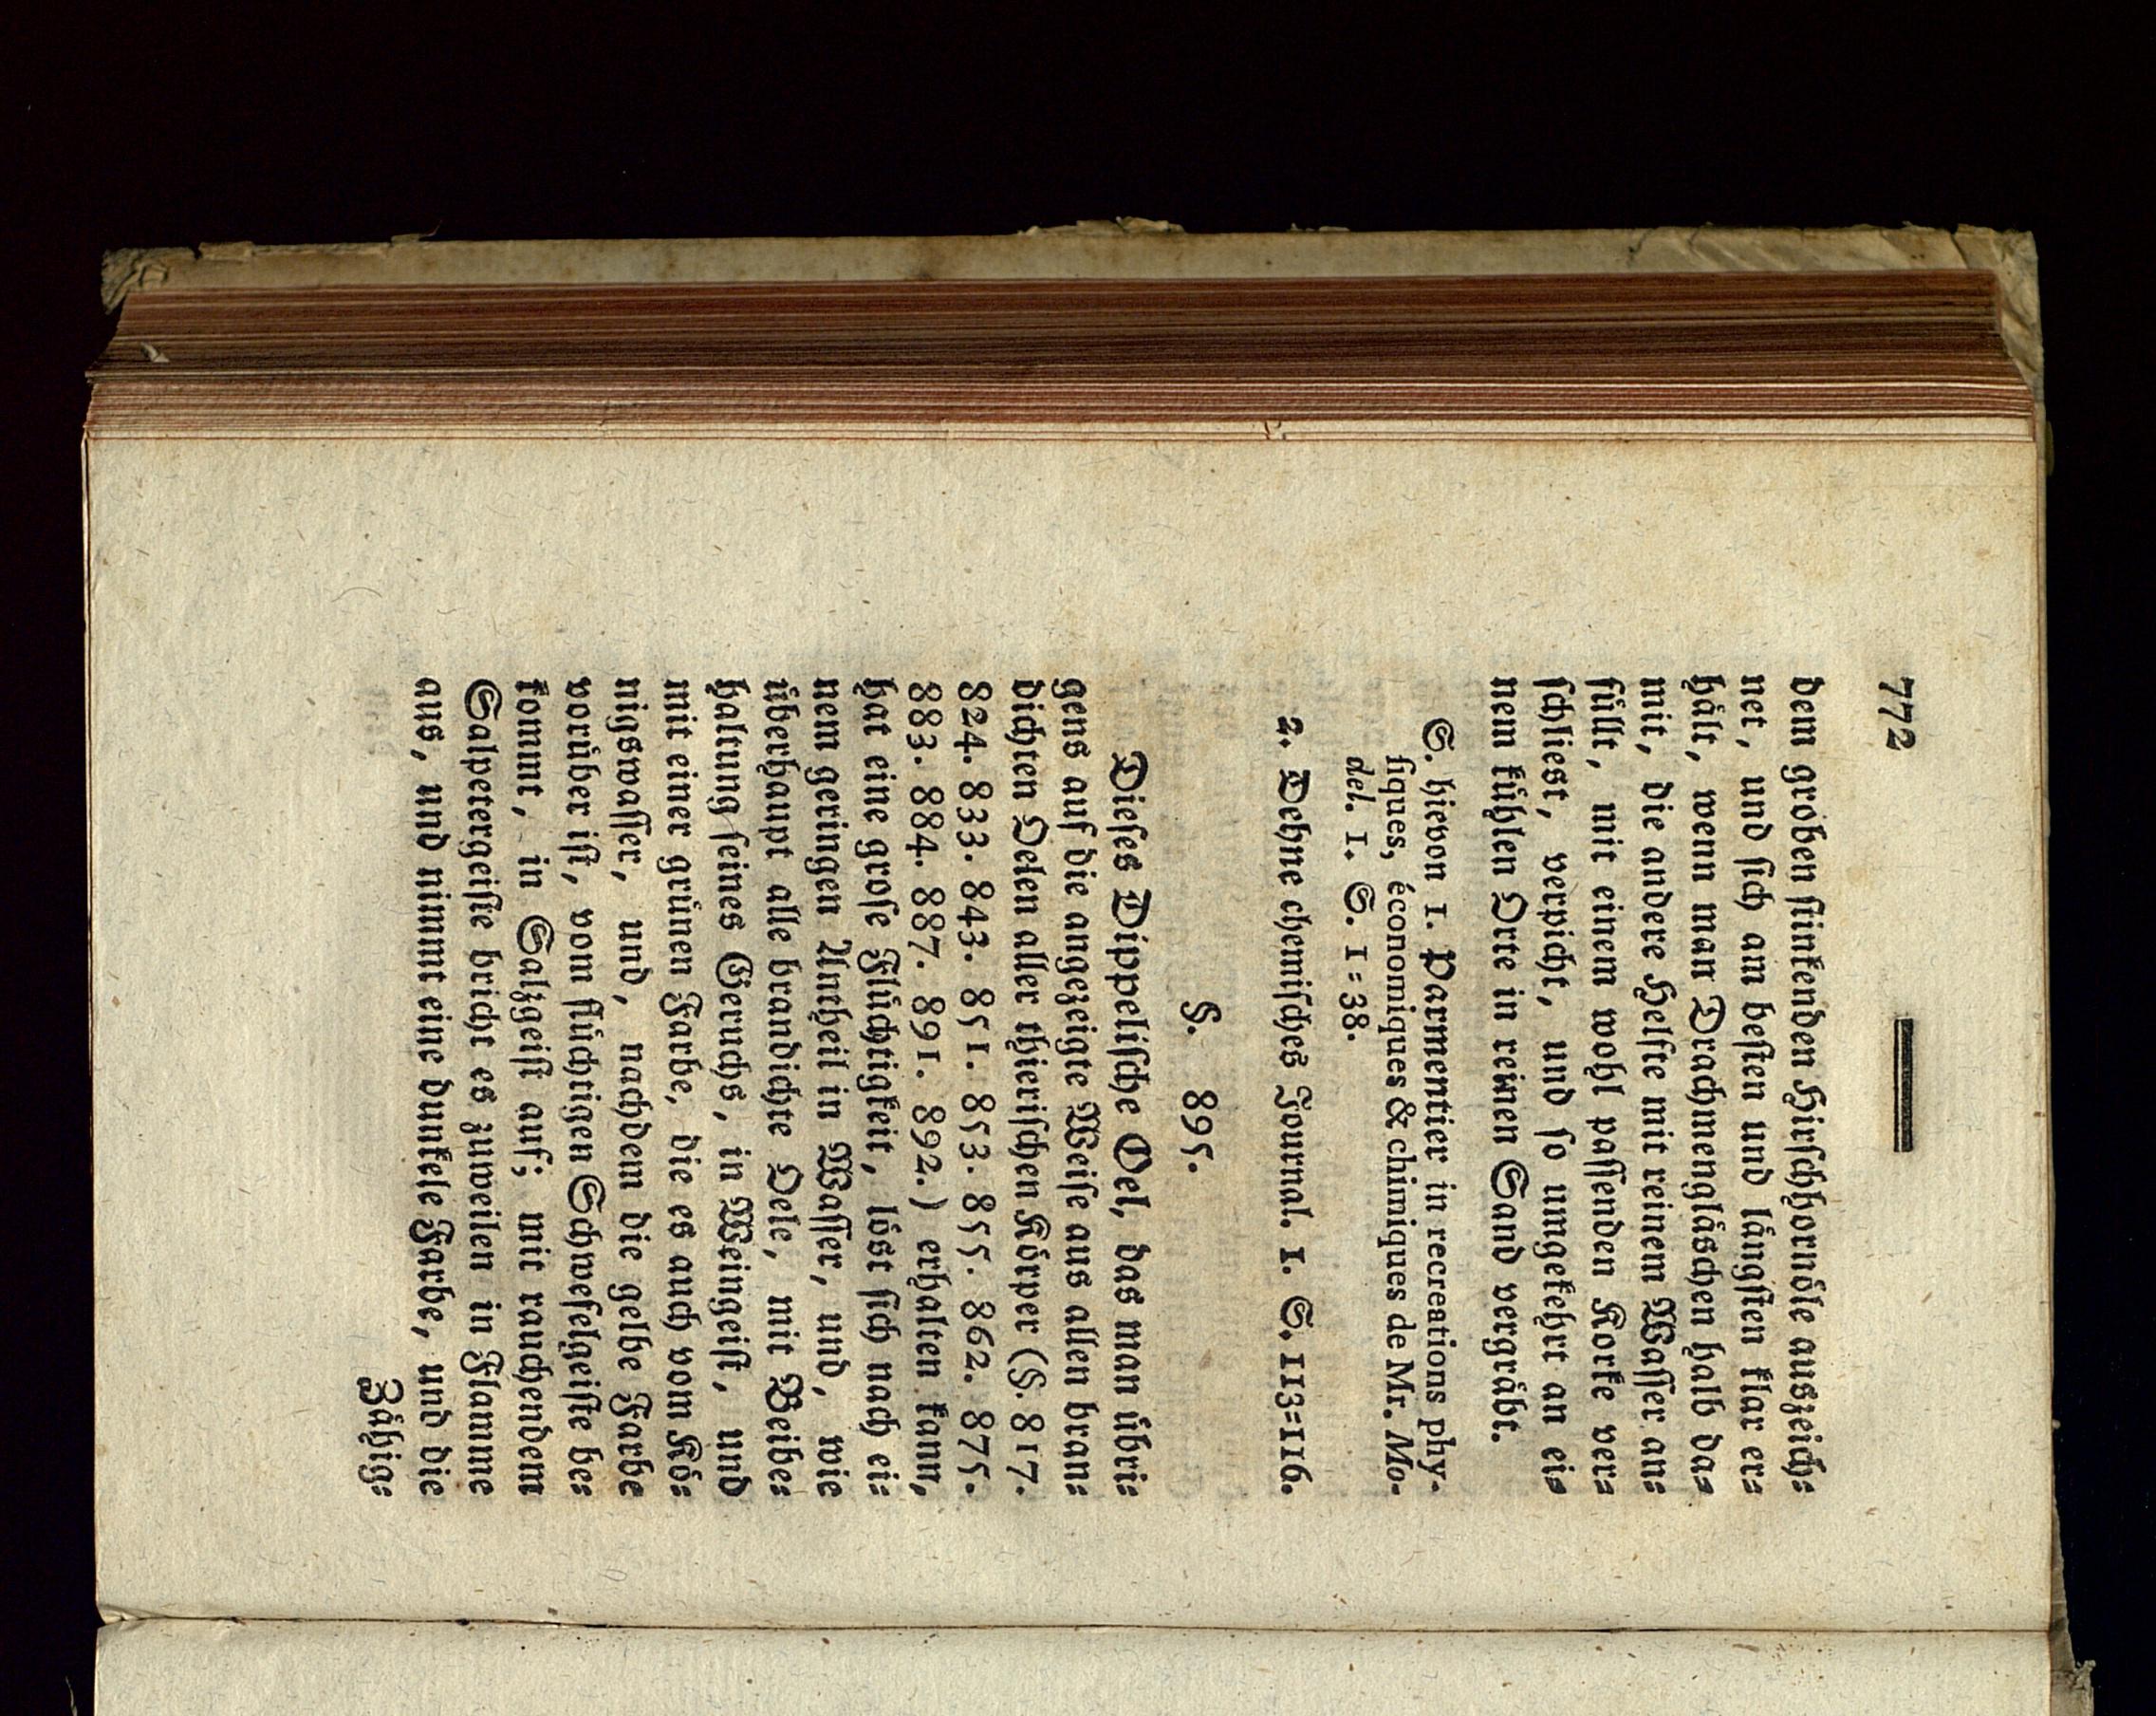 772
dem groben stinkenden Hirschhornöle auszeich=
net, und sich am besten und längsten klar er=
hält, wenn man Drachmengläschen halb da=
mit, die andere Helfte mit reinem Wasser an=
füllt, mit einem wohl passenden Korke ver=
schliest, verpicht, und so umgekehrt an ei=
nem kühlen Orte in reinen Sand vergräbt.
S. hievon 1. Parmentier in recreations phy-
siques, économiques & chimiques de Mr. Mo-
del. 1. S. 1=38.
2. Dehne chemisches Journal. 1. S. 113=116.
§. 895.
Dieses Dippelische Oel, das man übri=
gens auf die angezeigte Weise aus allen bran=
dichten Oelen aller thierischen Körper (§. 817.
824. 833. 843. 851. 853. 855. 862. 875.
883. 884. 887. 891. 892.) erhalten kann,
hat eine grose Flüchtigkeit, löst sich nach ei=
nem geringen Antheil in Wasser, und, wie
überhaupt alle brandichte Oele, mit Beibe=
haltung seines Geruchs, in Weingeist, und
mit einer grünen Farbe, die es auch vom Kö=
nigswasser, und, nachdem die gelbe Farbe
vorüber ist, vom flüchtigen Schwefelgeiste be=
kommt, in Salzgeist auf; mit rauchendem
Salpetergeiste bricht es zuweilen in Flamme
aus, und nimmt eine dunkele Farbe, und die
Zähig=